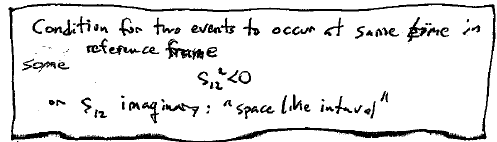 Condition for two events to occur at same time in
some reference frame
S₁₂² < 0
or S₁₂ imaginary: "space like interval"